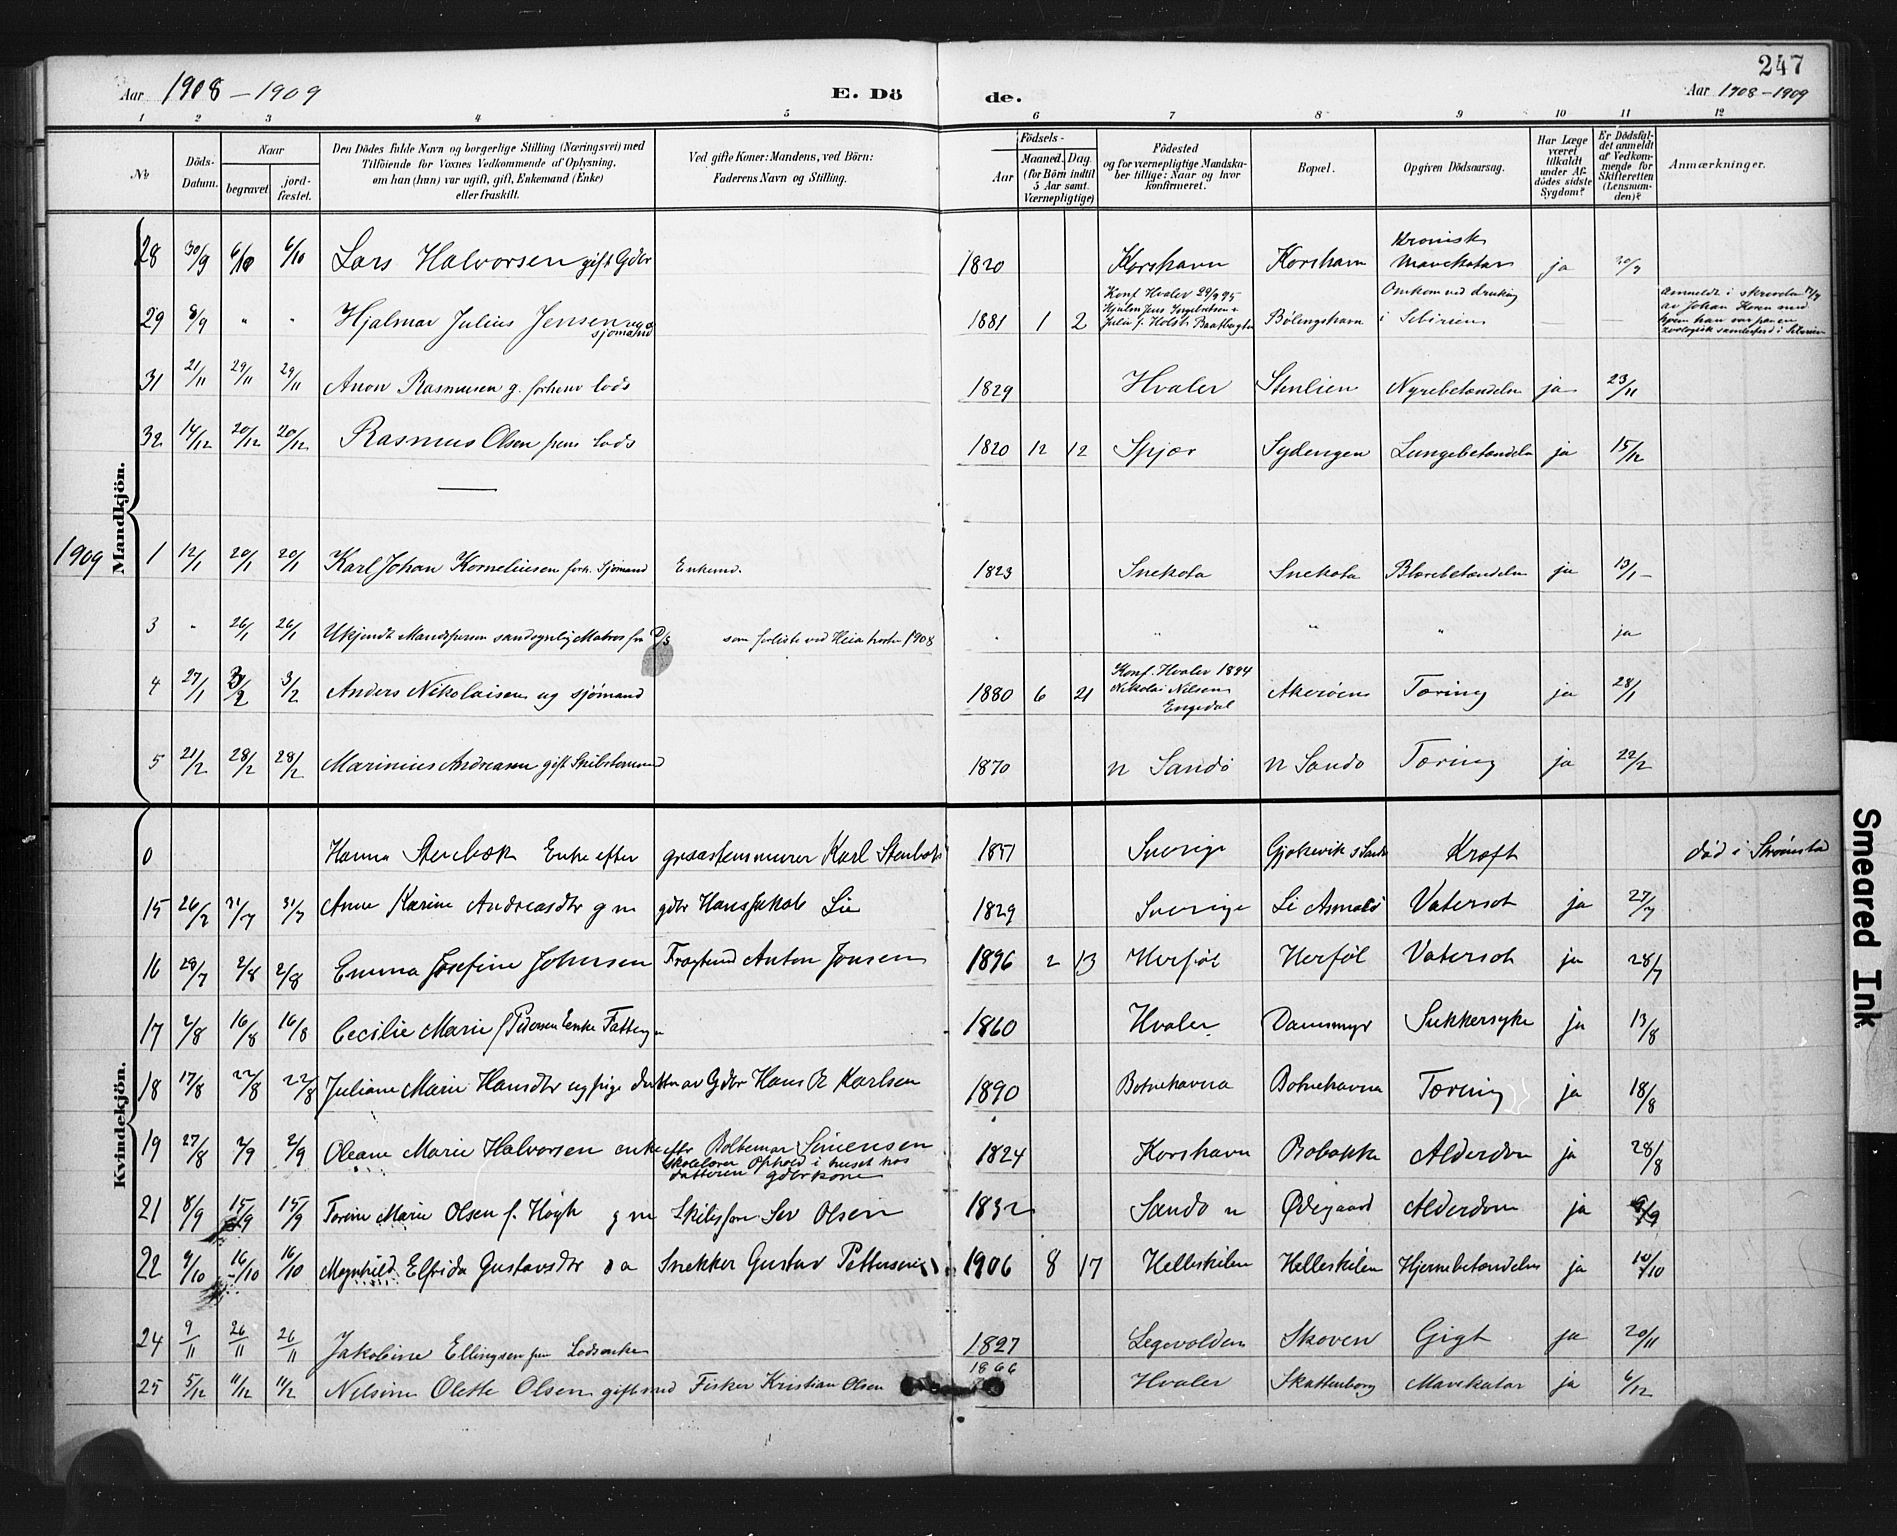 247
Aar 1908-1909 E. Dö de. Aar 1908-1909
1 2 3 4 5 6 7 8 9 10 11 12
No
Döds-Datum.
Naar
begravet
jordfæstet.
Den Dödes fulde Navn og borgerlige Stilling (Næringsvei) med
Tilföiende for Voxnes Vedkommende af Oplysning,
om han (hun) var ugift, gift, Enkemand (Enke)
eller fraskilt.
Ved gifte Koner: Mandens, ved Börn:
Faderens Navn og Stilling.
Födsels-
Aar
Maaned. Dag.
(for Börn indtil
5 Aar samt
Værnepligtige)
Födested
og for værnepligtige Mandskaber tillige: Naar og hvor
konfirmeret.
Bopæl.
Opgiven Dödsaarsag.
Har Læge
været
tilkaldt
under Afdödes sidste
Sygdom?
Er Dödsfaldet anmeldt
af Vedkommende for
Skifteretten
(Lensmanden)?
Anmærkninger.
Mandkjön.
28 30/9 6/10 6/10 Lars Halvorsen gift Gdbr 1820 Korshavn Korshavn Kronisk Mavekatar ja 30/9
29 8/9 " " Hjalmar Julius Jensen ug sjömand 1881 1 2 Konf Hvaler 29/9 95 Bölingshavn Omkom ved drukning i Sibirien
Anmeldt i skrivelse
av Johan Koren med
hvem han var paa en
zoologisk samlerferd i Sibirien
31 21/11 29/11 29/11 Anon Rasmusen g. forhenv lods 1829 Hvaler Stenlien Nyrebetændelse ja 23/11
32 14/12 20/12 20/12 Rasmus Olsen fhenv lods 1820 12 12 Spjær Sydengen Lungebetændelse ja 15/12
1909
1 12/1 20/1 20/1 Karl Johan Korneliusen forh. Sjömand Enkemd. 1823 Snekota Snekota Blærebetændelse ja 13/1
3 " 26/1 26/1 Ukjendt Mandsperson sandsynlig Matros fra D/S som forliste ved Heia høsten 1908 " " " " ja
4 27/1 3/2 3/2 Anders Nikolaisen ug sjömand 1880 6 21 Konf. Hvaler 1894 Nikolai Nilsen Engedal Akerøen Tæring ja 28/1
5 21/2 28/2 28/2 Marinius Andreasen gift Skibstømmermd 1870 n Sandö n Sandö Tæring ja 22/2
Kvindekjön.
0 Hanna Stenbæk Enke efter graastensmurer Karl Stenbæk 1851 Sverige Gjøkevik s Sandø Kræft död i Strömstad
15 26/7 31/7 31/7 Anne Karine Andreasdtr g m gdbr Hans Jakob Lie 1829 Sverige Li Asmalö Vatersot ja 27/7
16 28/7 2/8 2/8 Emma Josefine Johnsen Fragtemd Anton Jonsen 1896 2 13 Herföl Herföl Vatersot ja 28/7
17 2/8 16/8 16/8 Cecilie Marie Pedersen Enke Fattig 1860 Hvaler Dammyr Sukkersyke ja 13/8
18 17/8 22/8 22/8 Juliane Marie Hansdtr ug pige datter av Gdbr Hans O Karlsen 1890 Botnehavna Botnehavna Tæring ja 18/8
19 27/8 2/9 2/9 Oleane Marie Halvorsen enke eftr Boltemar Simensen
Skolelærer Ophold i huset hos
datteren gdbrkone 1824 Korshavn Robakke Alderdom ja 28/8
21 8/9 15/9 15/9 Torine Marie Olsen f. Høgh g m Skibsfører Sev Olsen 1832 Sandö n Ødegaard Alderdom ja 9/9
22 9/10 16/10 16/10 Magnhild Elfrida Gustavsdtr d a Snekker Gustav Pettersen 1906 8 17 Helleskilen Helleskilen Hjernebetændelse ja 10/10
24 9/11 26/11 26/11 Jakobine Ellingsen fhv Lodsenke 1827 Legevolden Skoven Gigt ja 20/11
25 5/12 11/12 11/12 Nelsine Olette Olsen gift med Fisker Kristian Olsen 1866 Hvaler Skattenborg Mavekatar ja 6/12
Smeared Ink